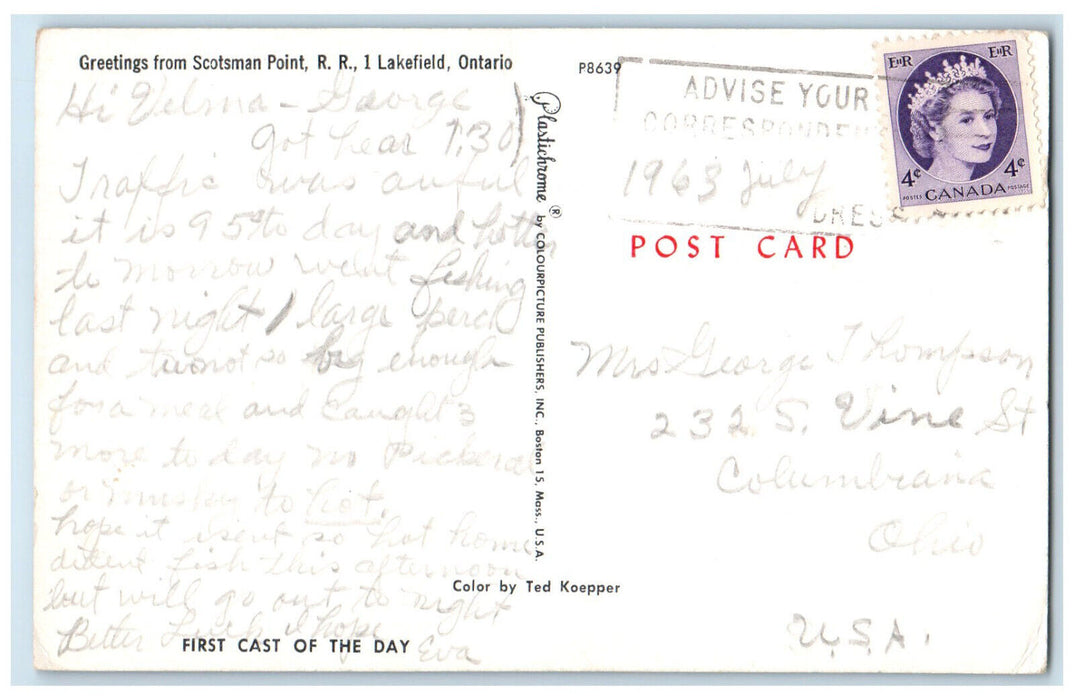 Greetings from Scotsman Point, R. R., 1 Lakefield, Ontario
Hi Velma - George
got hear 7,30
Traffic was awful
it is 95 to day and hotter
to morrow went fishing
last night 1 large perch
and two not so big enough
for a meal and caught 3
more to day no Pickeral
or musky to hot.
hope it isent so hot home
dident fish this afternoon
but will go out to night
Better Luck I hope
Eva
FIRST CAST OF THE DAY
P8639
Plastichrome ® by COLOURPICTURE PUBLISHERS, INC., Boston 15, Mass., U.S.A.
Color by Ted Koepper
ADVISE YOUR
CORRESPONDEN
1963 July
DRESS
EIIR EIIR
4¢ 4¢
POSTES CANADA POSTAGE
POST CARD
Mrs George Thompson
232 S. Vine St
Columbiana
Ohio
U.S.A.